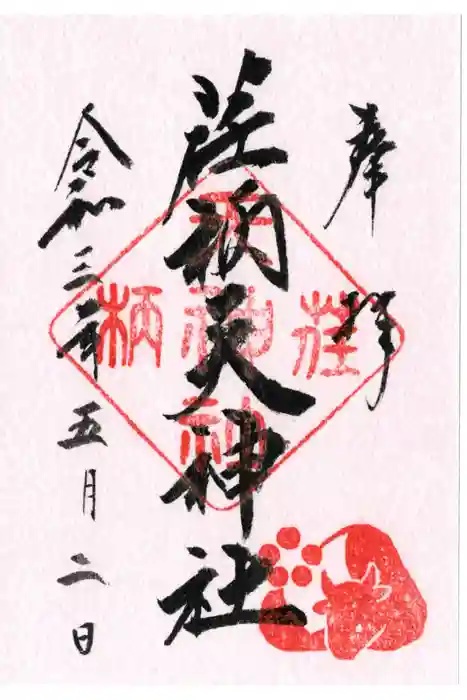 奉拝
荏柄天神社
令和三年五月二日
荏
柄